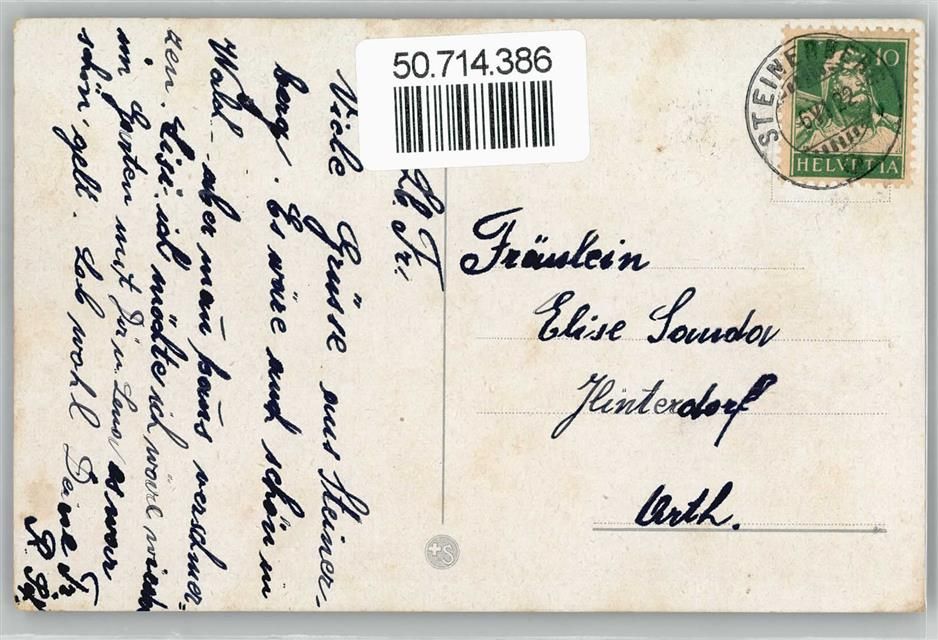 50.714.386
STEINERBERG
10
HELVETIA
Lb Fr.
Viele Grüsse aus Steiner-
berg. Es wäre auch schön in
Wald - aber man kans verschmer-
zen. Lisi ich möchte ich wäre wieder
im Garten mit Dir u. Lena es war
schön gelt. Leb wohl Deine Fr.
Fräulein
Elise Sanda
Hinterdorf
Arth.